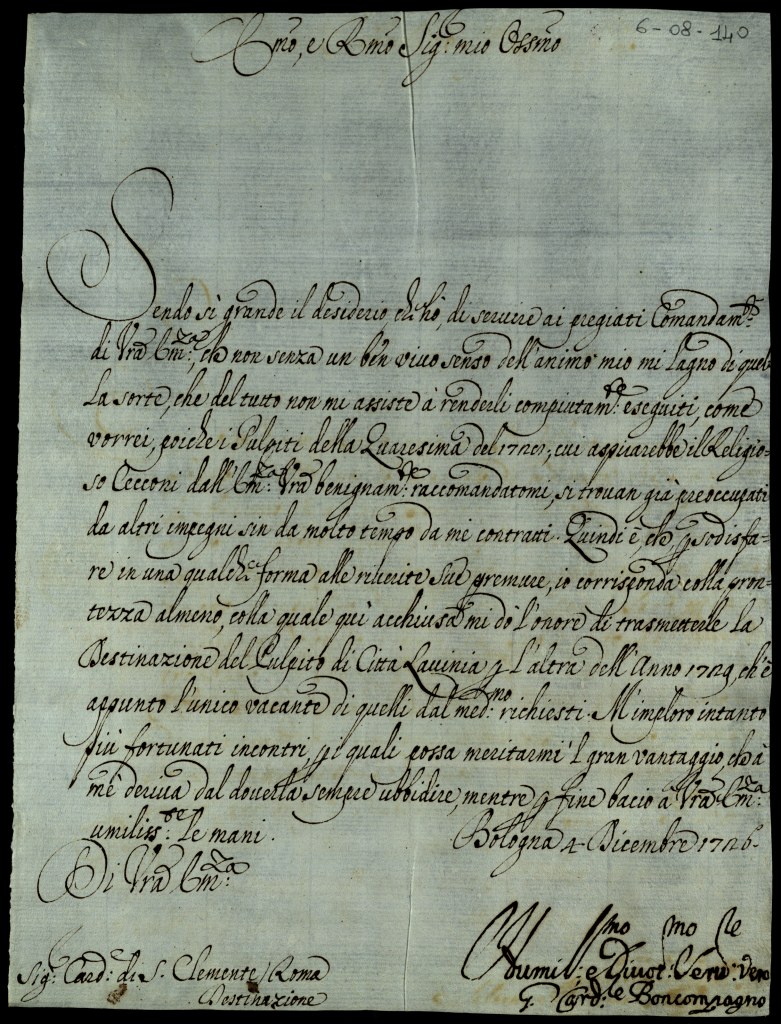 6-08-140
Emo, e Rmo Sig.r mio Ossmo
Sendo sì grande il desiderio ch'hò, di servire ai pregiati Comandam.ti
di Vra Em.za, che non senza un ben vivo senso dell'animo mio mi lagno di quel=
la sorte, che del tutto non mi assiste à renderli compiutam.te eseguiti, come
vorrei, poiche i Pulpiti della Quaresima del, cui aspirarebbe il Religio=
so Cecconi dall'Em.za Vra benignam.te raccomandatomi, si trovan già preoccupati
da altri impegni sin da molto tempo da me contratti. Quindi è, che p sodisfa=
re in una qualche forma alle riverite Sue premure, io corrisponda colla pron=
tezza almeno, colla quale quì acchiusa mi dò l'onore di trasmetterle la
Destinazione del Pulpito di Città Lavinia p l'altra dell'Anno 1729, ch'è
appunto l'unico vacante di quelli dal med.mo richiesti. M'imploro intanto
più fortunati incontri, p i quali possa meritarmi 'l gran vantaggio, che à
mè deriva dal doverla sempre ubbidire, mentre p fine bacio à Vra Em.za
umiliss.te le mani.
Bologna 4 Dicembre 1726.
Di Vra Em.za
Humil.mo e Divot.mo Serv.re vero
G. Card.le Boncompagno
Sig.r Card.e di S. Clemente / Roma
Destinazione